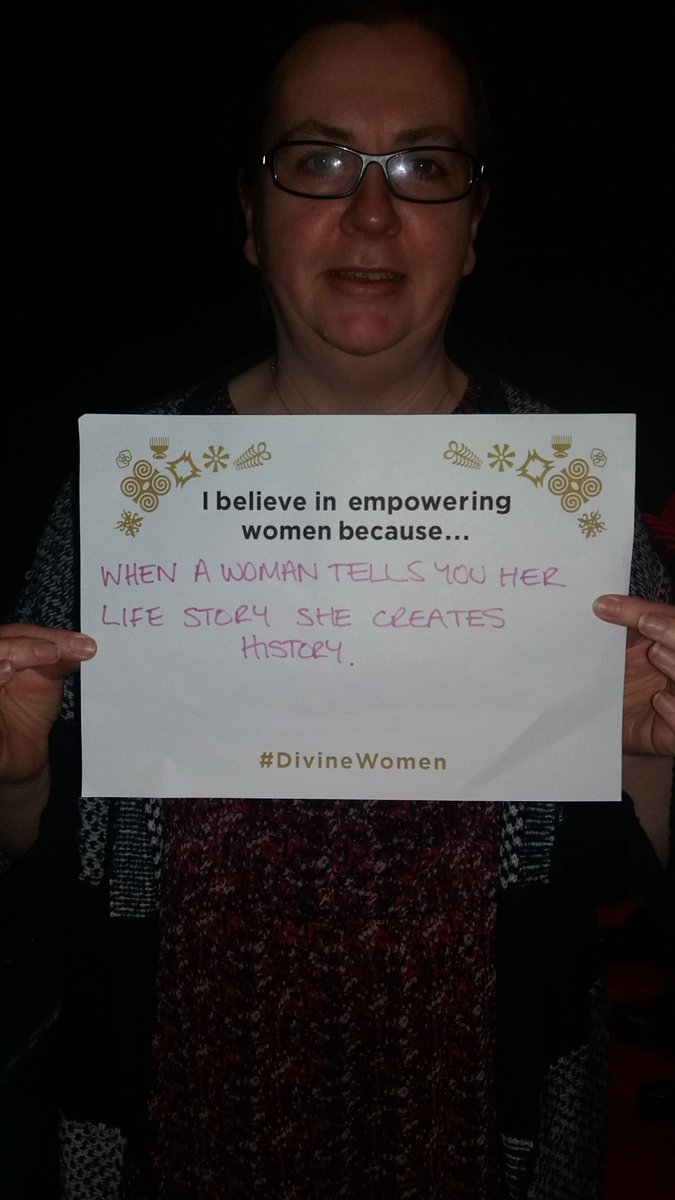 I believe in empowering
women because...
WHEN A WOMAN TELLS YOU HER
LIFE STORY SHE CREATES
HISTORY.
#DivineWomen